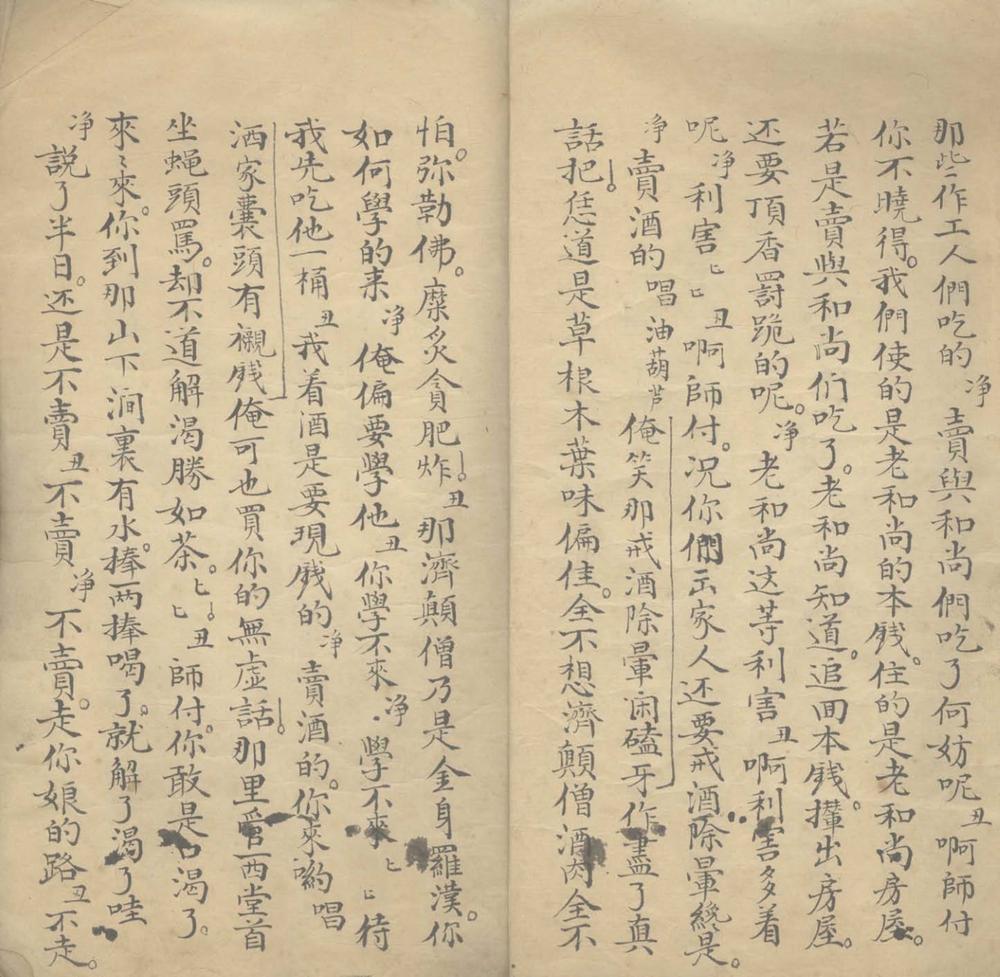 那些作工人們吃的 净 賣與和尚們吃了何妨呢 丑 啊師付
你不曉得。我們使的是老和尚的本戋。住的是老和尚房屋。
若是賣與和尚们吃了。老和尚知道。追囬本戋。攆出房屋。
还要頂香罸跪的呢。净 老和尚这等利害 丑 啊利害多着
呢 净 利害 匕 匕 丑 啊師付。况你們出家人还要戒酒除暈纔是。
净 賣酒的 唱 油葫芦 俺笑那戒酒除暈闲磕牙作盡了真
話把。恁道是草根木葉味偏佳。全不想濟顛僧酒肉全不
怕。弥勒佛。糜炙貪肥炸。丑 那濟顛僧乃是金身羅漢。你
如何學的来 净 俺偏要學他 丑 你學不來 净 學不來 匕 匕 待
我先吃他一桶 丑 我着酒是要現戋的 净 賣酒的。你來喲 唱
洒家囊頭有襯戋俺可也買你的無虚話。那里管西堂首
坐蝇頭罵。却不道解渴勝如茶。匕 匕 丑 師付。你敢是口渴了。
來〻來。你到那山下涧裏有水。捧两捧喝了。就解了渴了哇
净 説了半日。还是不賣 丑 不賣 净 不賣。走你娘的路 丑 不走。